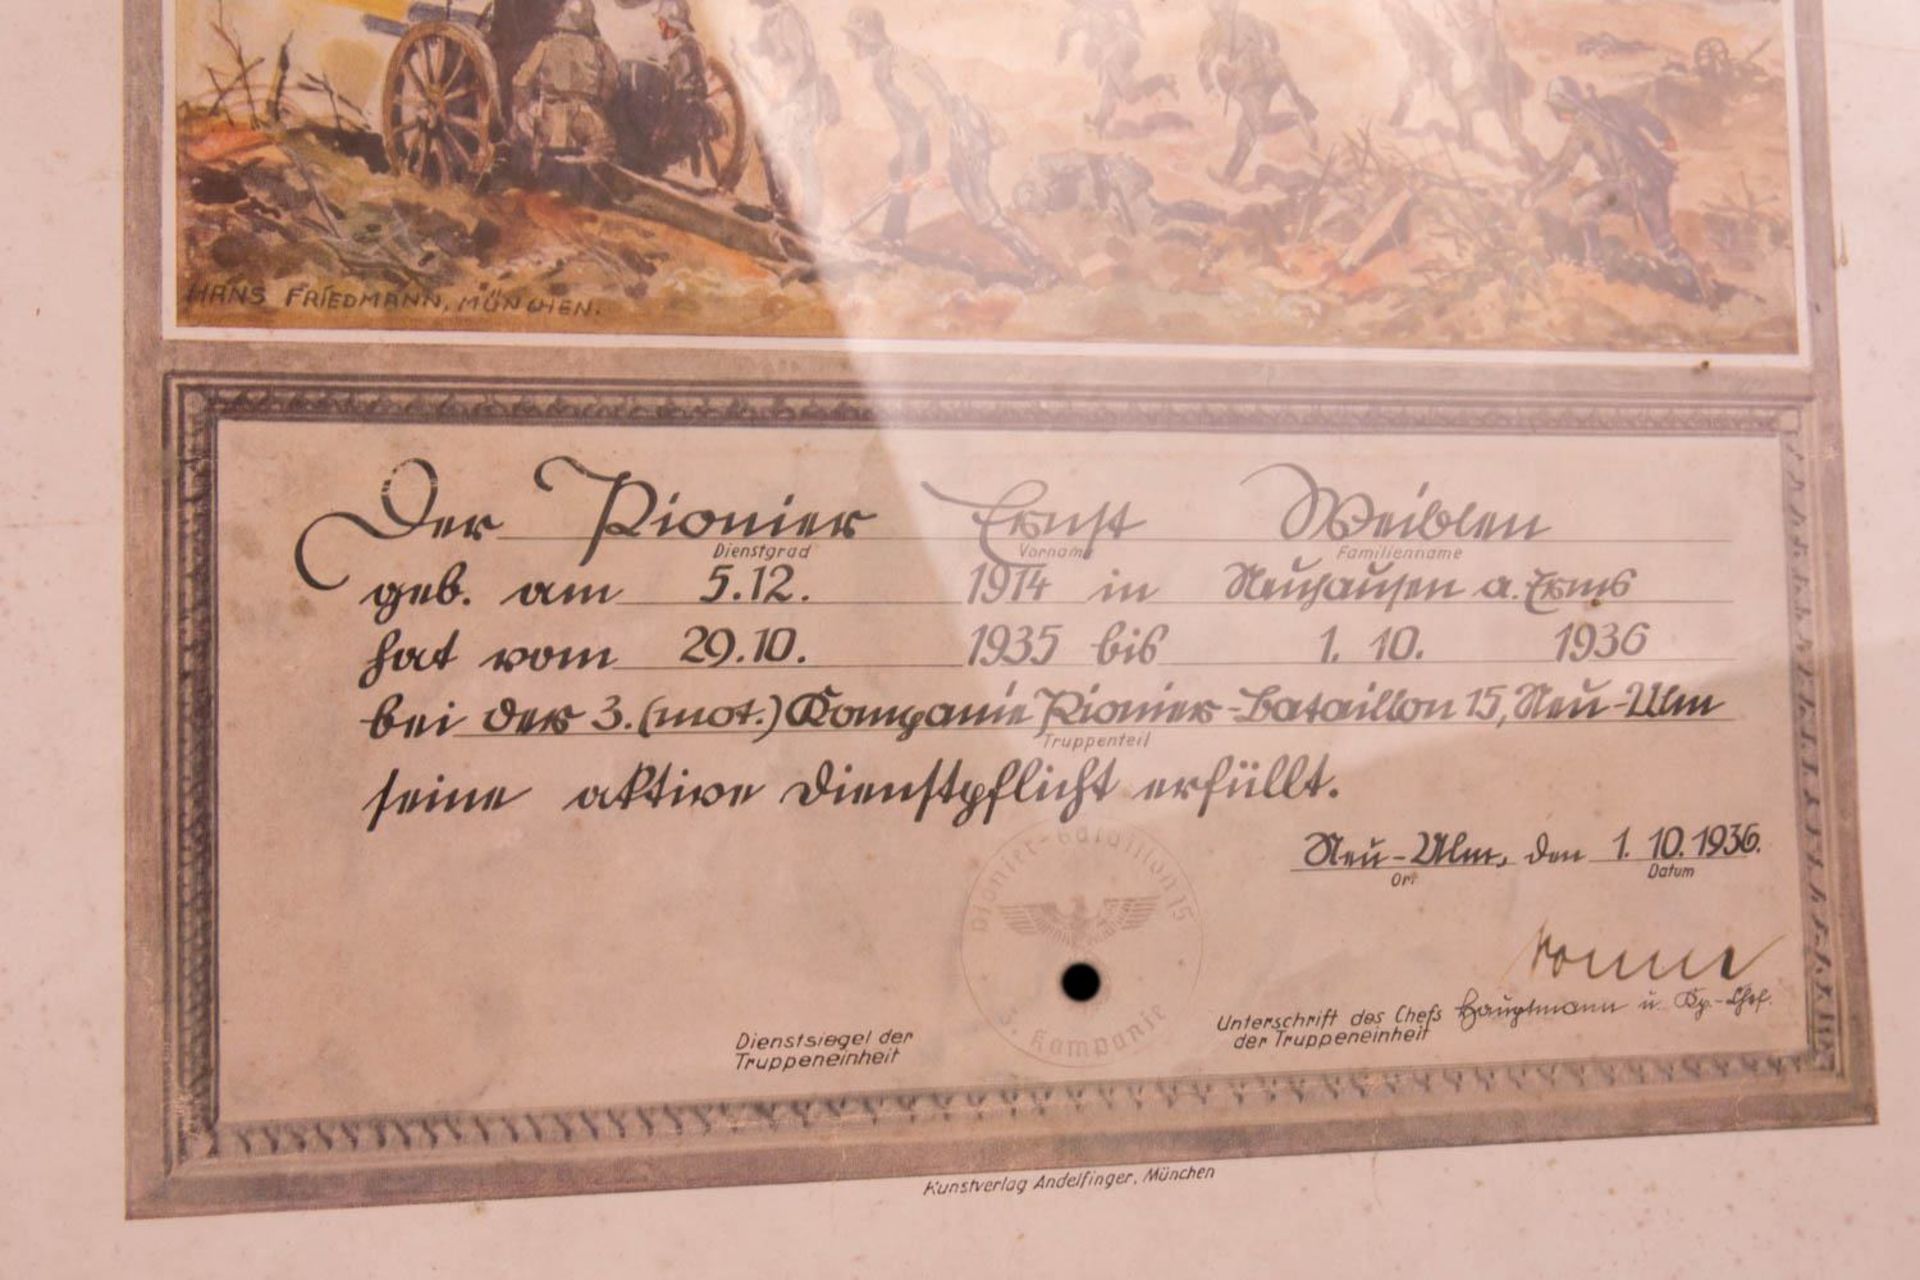 HANS FRIEDMANN, MÜNCHEN.
Der Pionier Ernst Weiblen
Dienstgrad Vorname Familienname
geb. am 5.12. 1914 in Neuhausen a. Erms
hat vom 29.10. 1935 bis 1. 10. 1936
bei der 3. (mot.) Kompanie Pionier-Bataillon 15, Neu-Ulm
Truppenteil
seine aktive Dienstpflicht erfüllt.
Neu-Ulm, den 1. 10. 1936.
Ort Datum
Pionier-Bataillon 15
3. Kompanie
Dienstsiegel der
Truppeneinheit
Unterschrift des Chefs
der Truppeneinheit
Hauptmann u. Kp.-Chef.
Kunstverlag Andelfinger, München